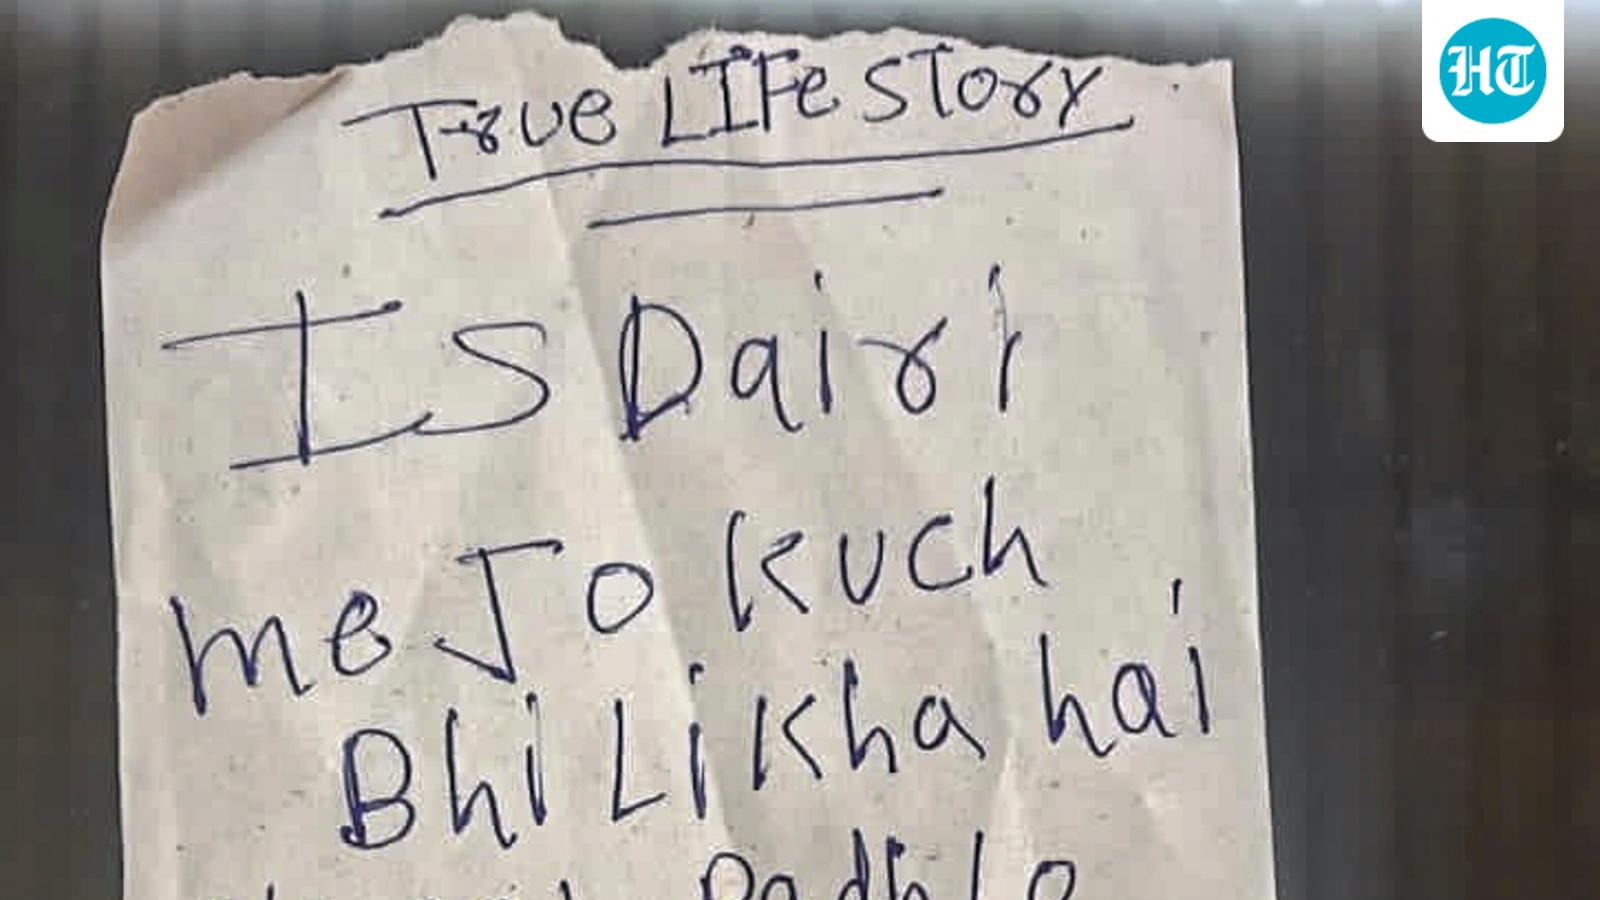 HT
True LIFe STory
Is Dairi
me Jo kuch
Bhi Likha hai
Padh lo